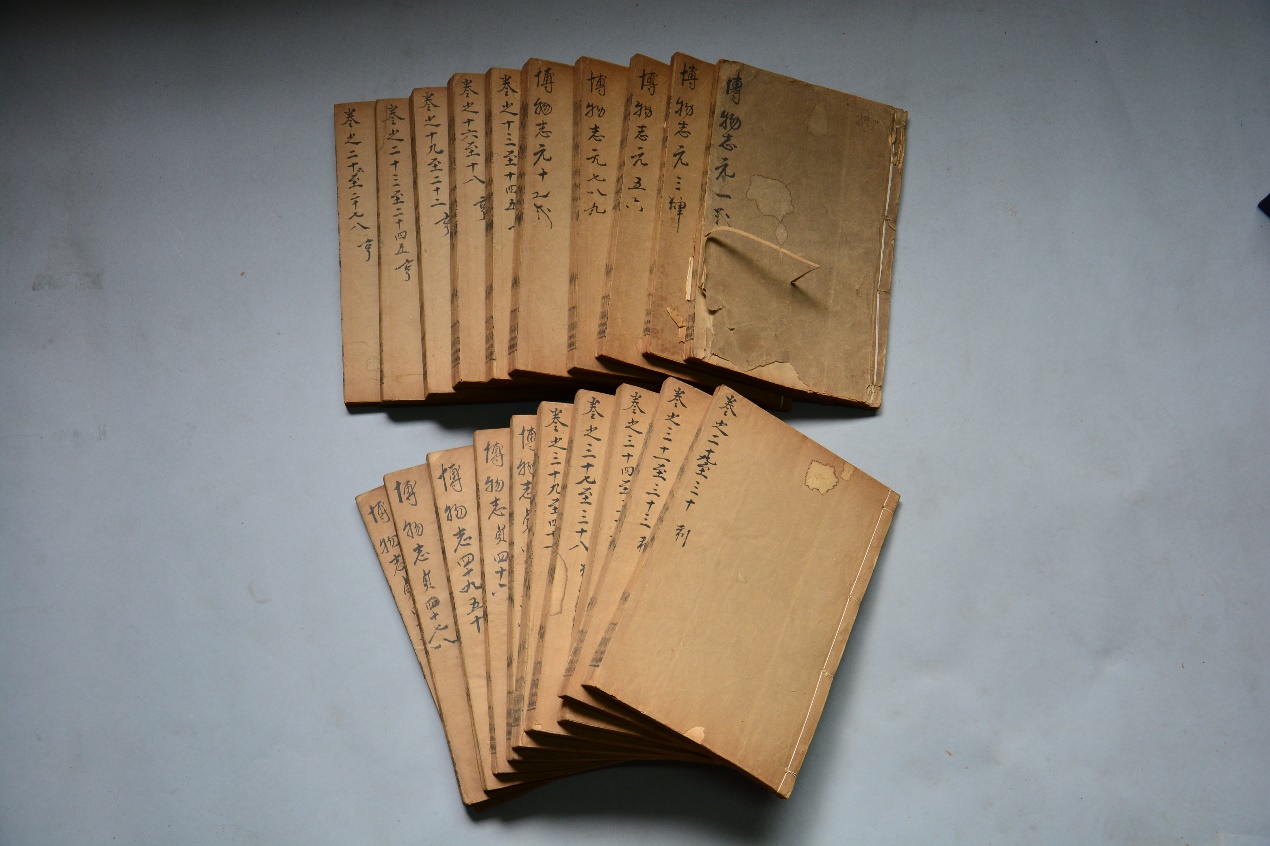 博物志元一弍
博物志元三肆
博物志元五六
博物志元七八九
博物志元十乙弍
卷之十三至十四五
卷之十六至十八 亨
卷之十九至二十二 亨
卷之二十三至二十四五 亨
卷之二十六至二十七八 亨
卷之二十九至三十 利
卷之三十一至三十三 利
卷之三十四至三十
卷之三十七至三十八
卷之三十九至四十一
博物志貞
博物志貞四十六
博物志四十九五十
博物志貞四十七八
博物志貞